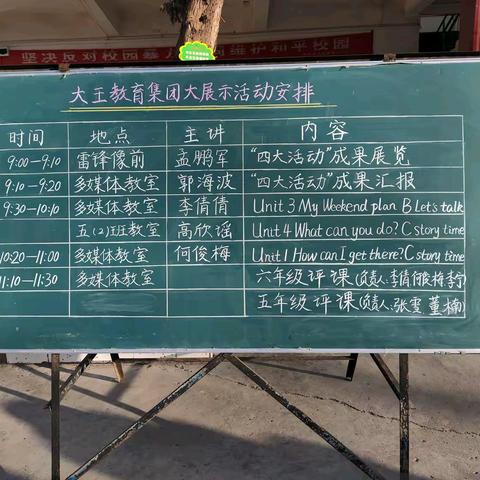 坚决反对校园暴 维护和平校园
大王教育集团大展示活动安排
时间 地点 主讲 内容
9:00—9:10 雷锋像前 孟鹏军 "四大活动"成果展览
9:10—9:20 多媒体教室 郭海波 "四大活动"成果汇报
9:30—10:10 多媒体教室 李倩倩 Unit 3 My Weekend plan B Let's talk
五(2)班教室 高欣谣 Unit 4 What can you do? C story time
10:20—11:00 多媒体教室 何俊梅 Unit 1 How can I get there? C story time
11:10—11:30 多媒体教室 六年级评课(负责人:李倩 何俊梅
五年级评课(负责人:张雯 董楠)